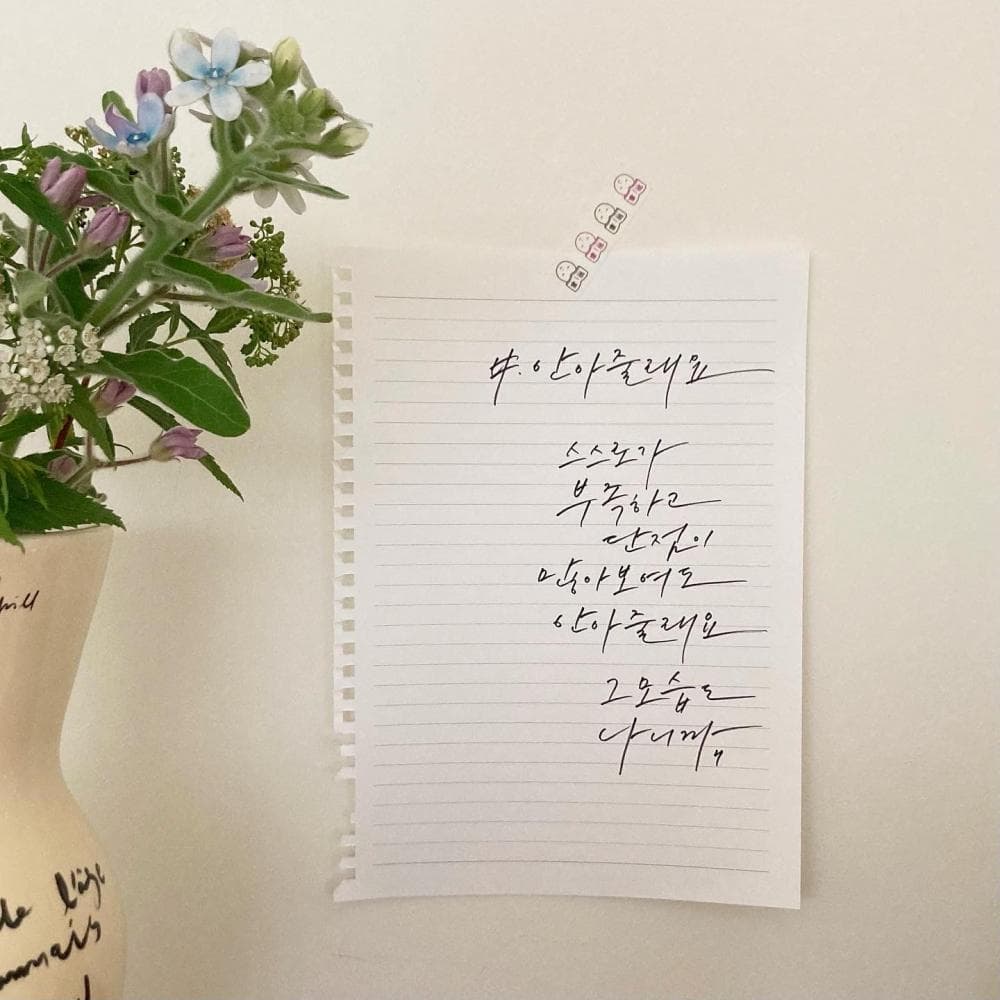 #. 안아줄래요
스스로가
부족하고
단점이
많아보여도
안아줄래요
그 모습도
나니까
de l'âge